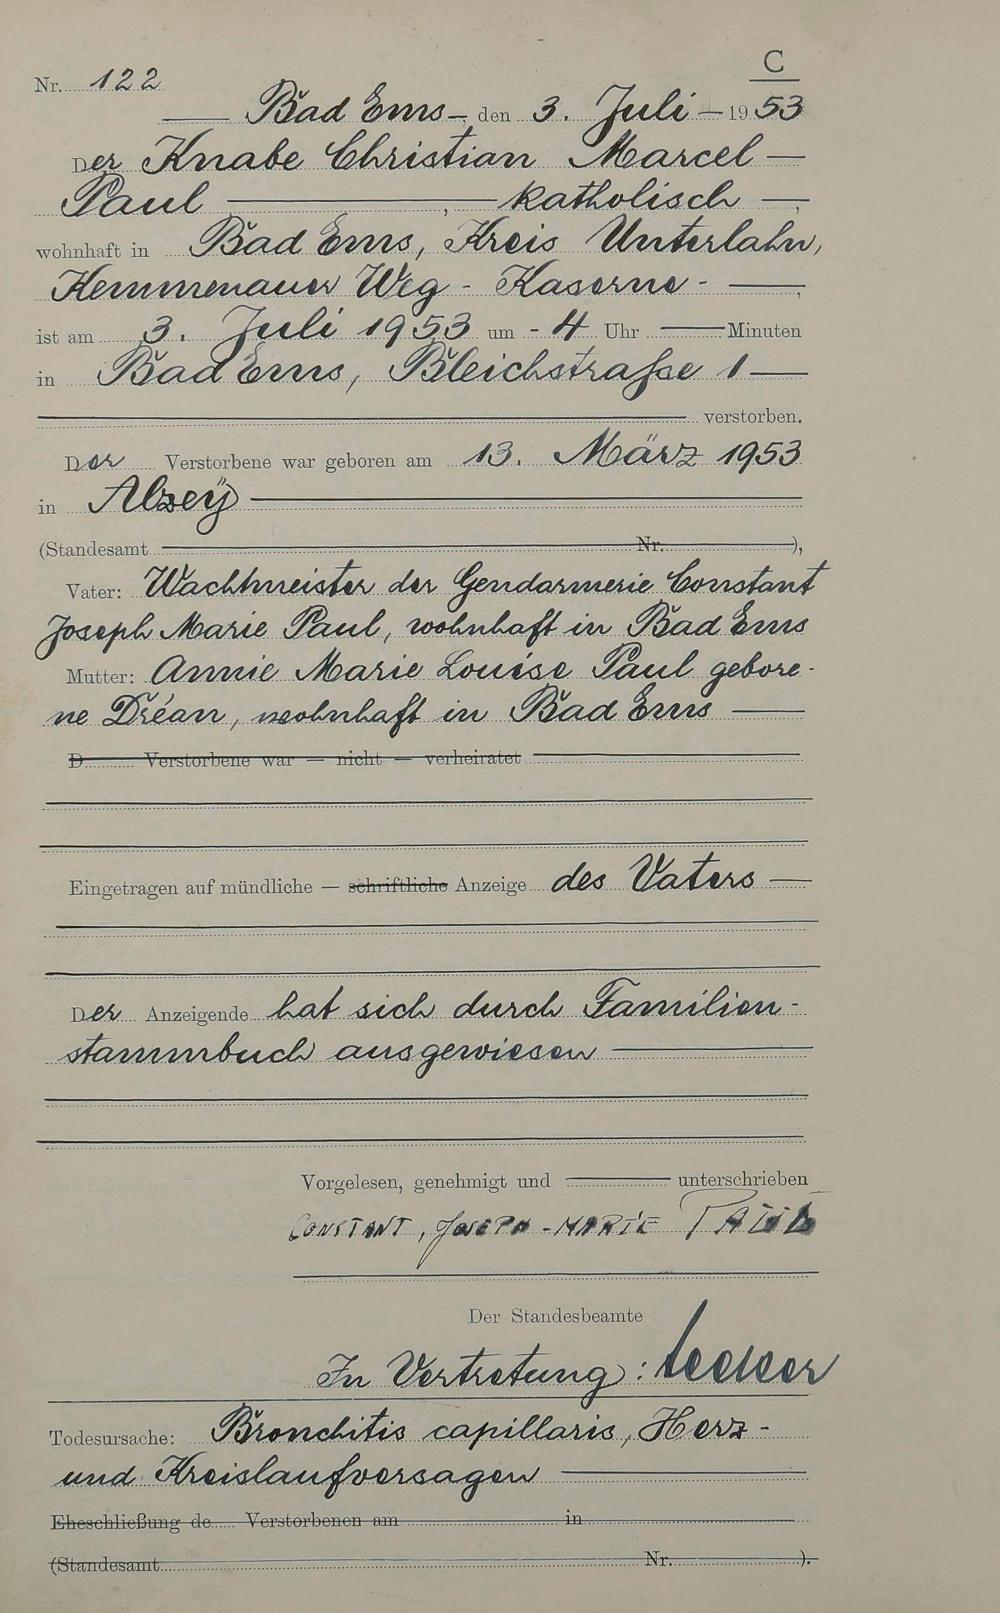 C
Nr. 122
Bad Ems, den 3. Juli 1953
Der Knabe Christian Marcel
Paul, katholisch,
wohnhaft in Bad Ems, Kreis Unterlahn,
Kemmenauer Weg - Kaserne -,
ist am 3. Juli 1953 um - 4 Uhr Minuten
in Bad Ems, Bleichstraße 1
verstorben.
Der Verstorbene war geboren am 13. März 1953
in Alzey
(Standesamt Nr. ),
Vater: Wachtmeister der Gendarmerie Constant
Joseph Marie Paul, wohnhaft in Bad Ems
Mutter: Annie Marie Louise Paul gebore-
ne Dréan, wohnhaft in Bad Ems
D Verstorbene war — nicht — verheiratet
Eingetragen auf mündliche — schriftliche Anzeige des Vaters
Der Anzeigende hat sich durch Familien-
stammbuch ausgewiesen
Vorgelesen, genehmigt und unterschrieben
CONSTANT, JOSEPH-MARIE PAUL
Der Standesbeamte
In Vertretung:
Todesursache: Bronchitis capillaris, Herz-
und Kreislaufversagen
Eheschließung de Verstorbenen am in
(Standesamt Nr. ).